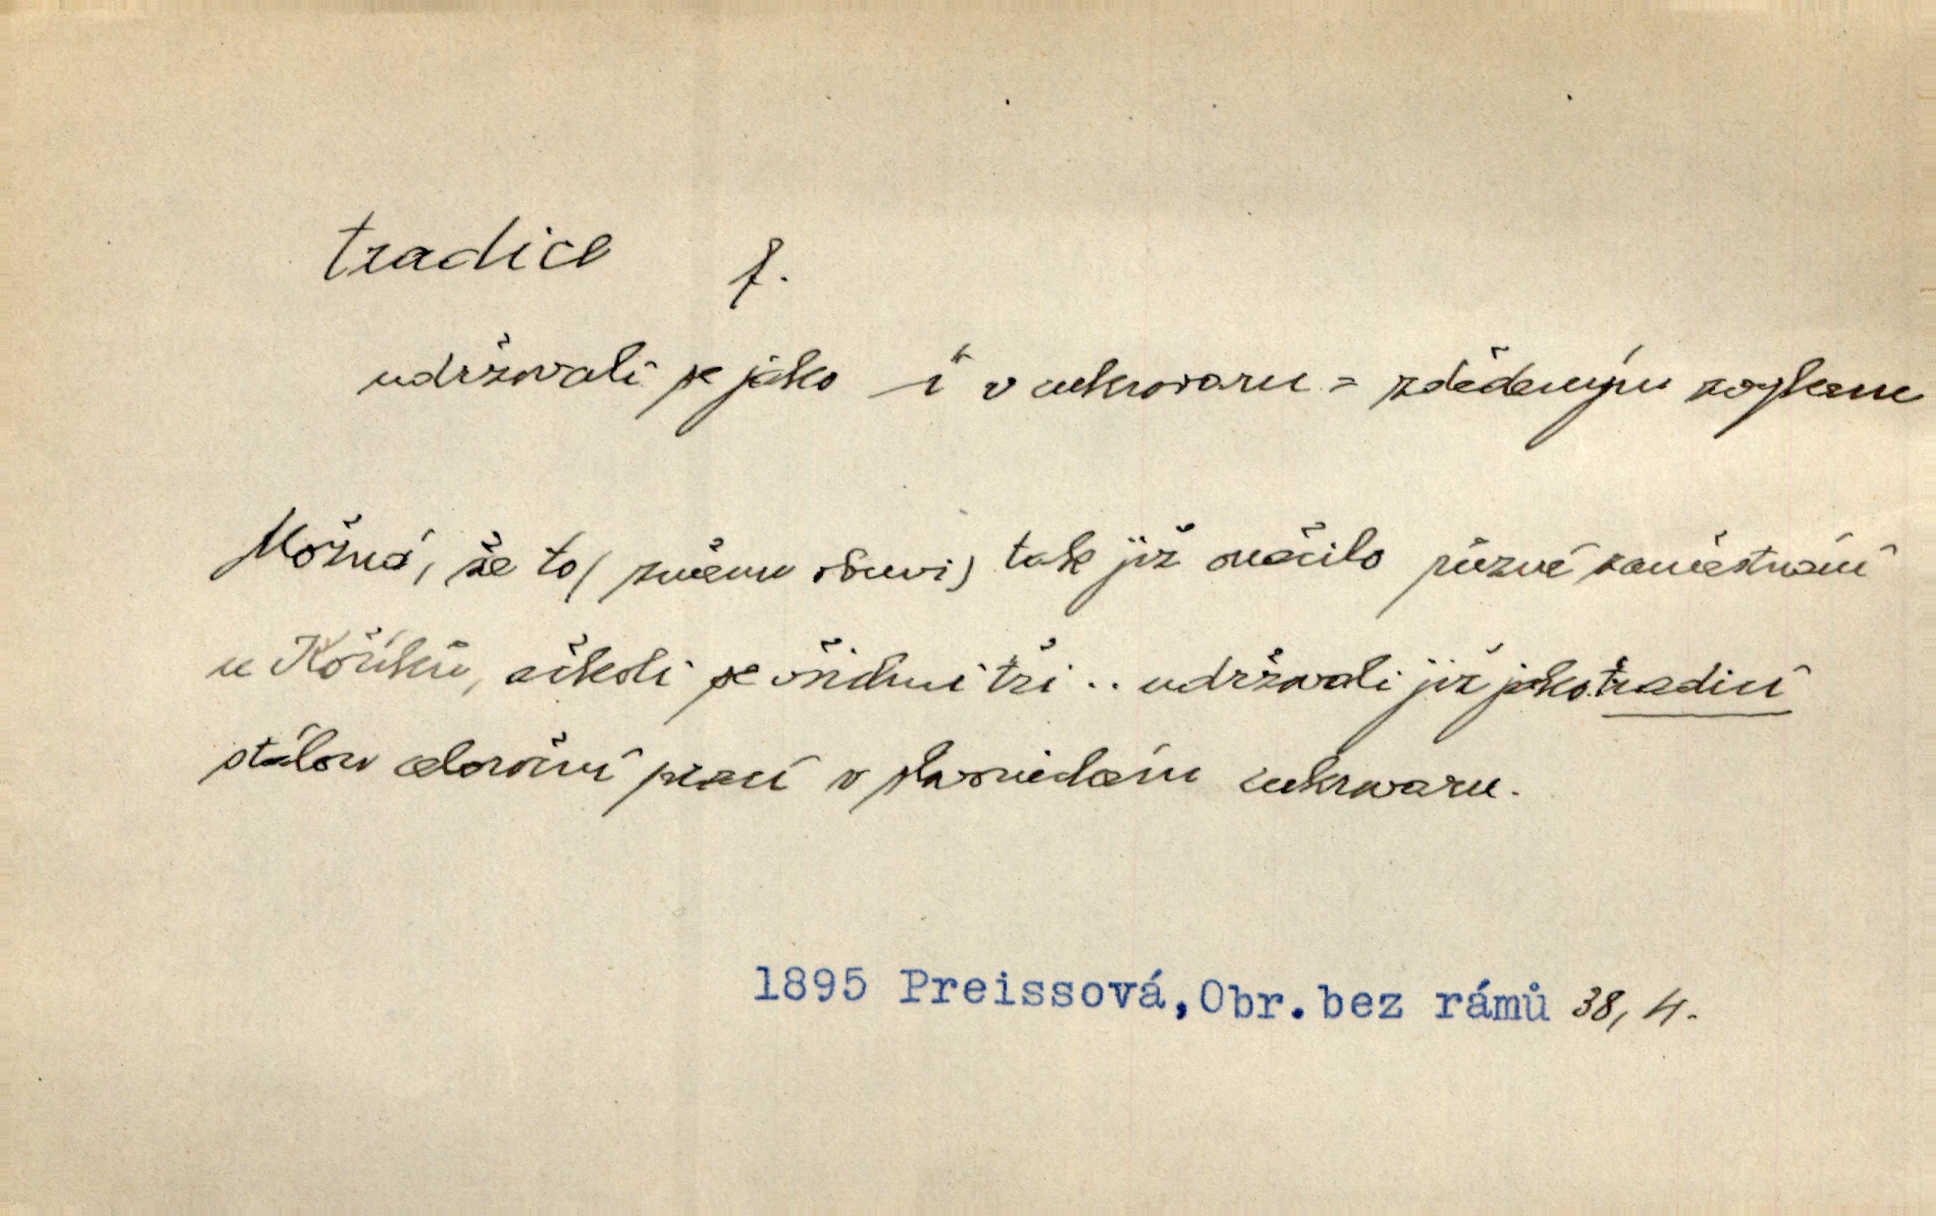 tradice f.
udržovali se jako – í v cukrovaru = zděděným zvykem
Možná, že to (změnu obuvi) tak již značilo různé zaměstnání
u Kořínků, ačkoli se všichni tři .. udržovali již jako tradicí
stálou celoroční prací v slavnickém cukrovaru.
1895 Preissová, Obr. bez rámů 38, 4.